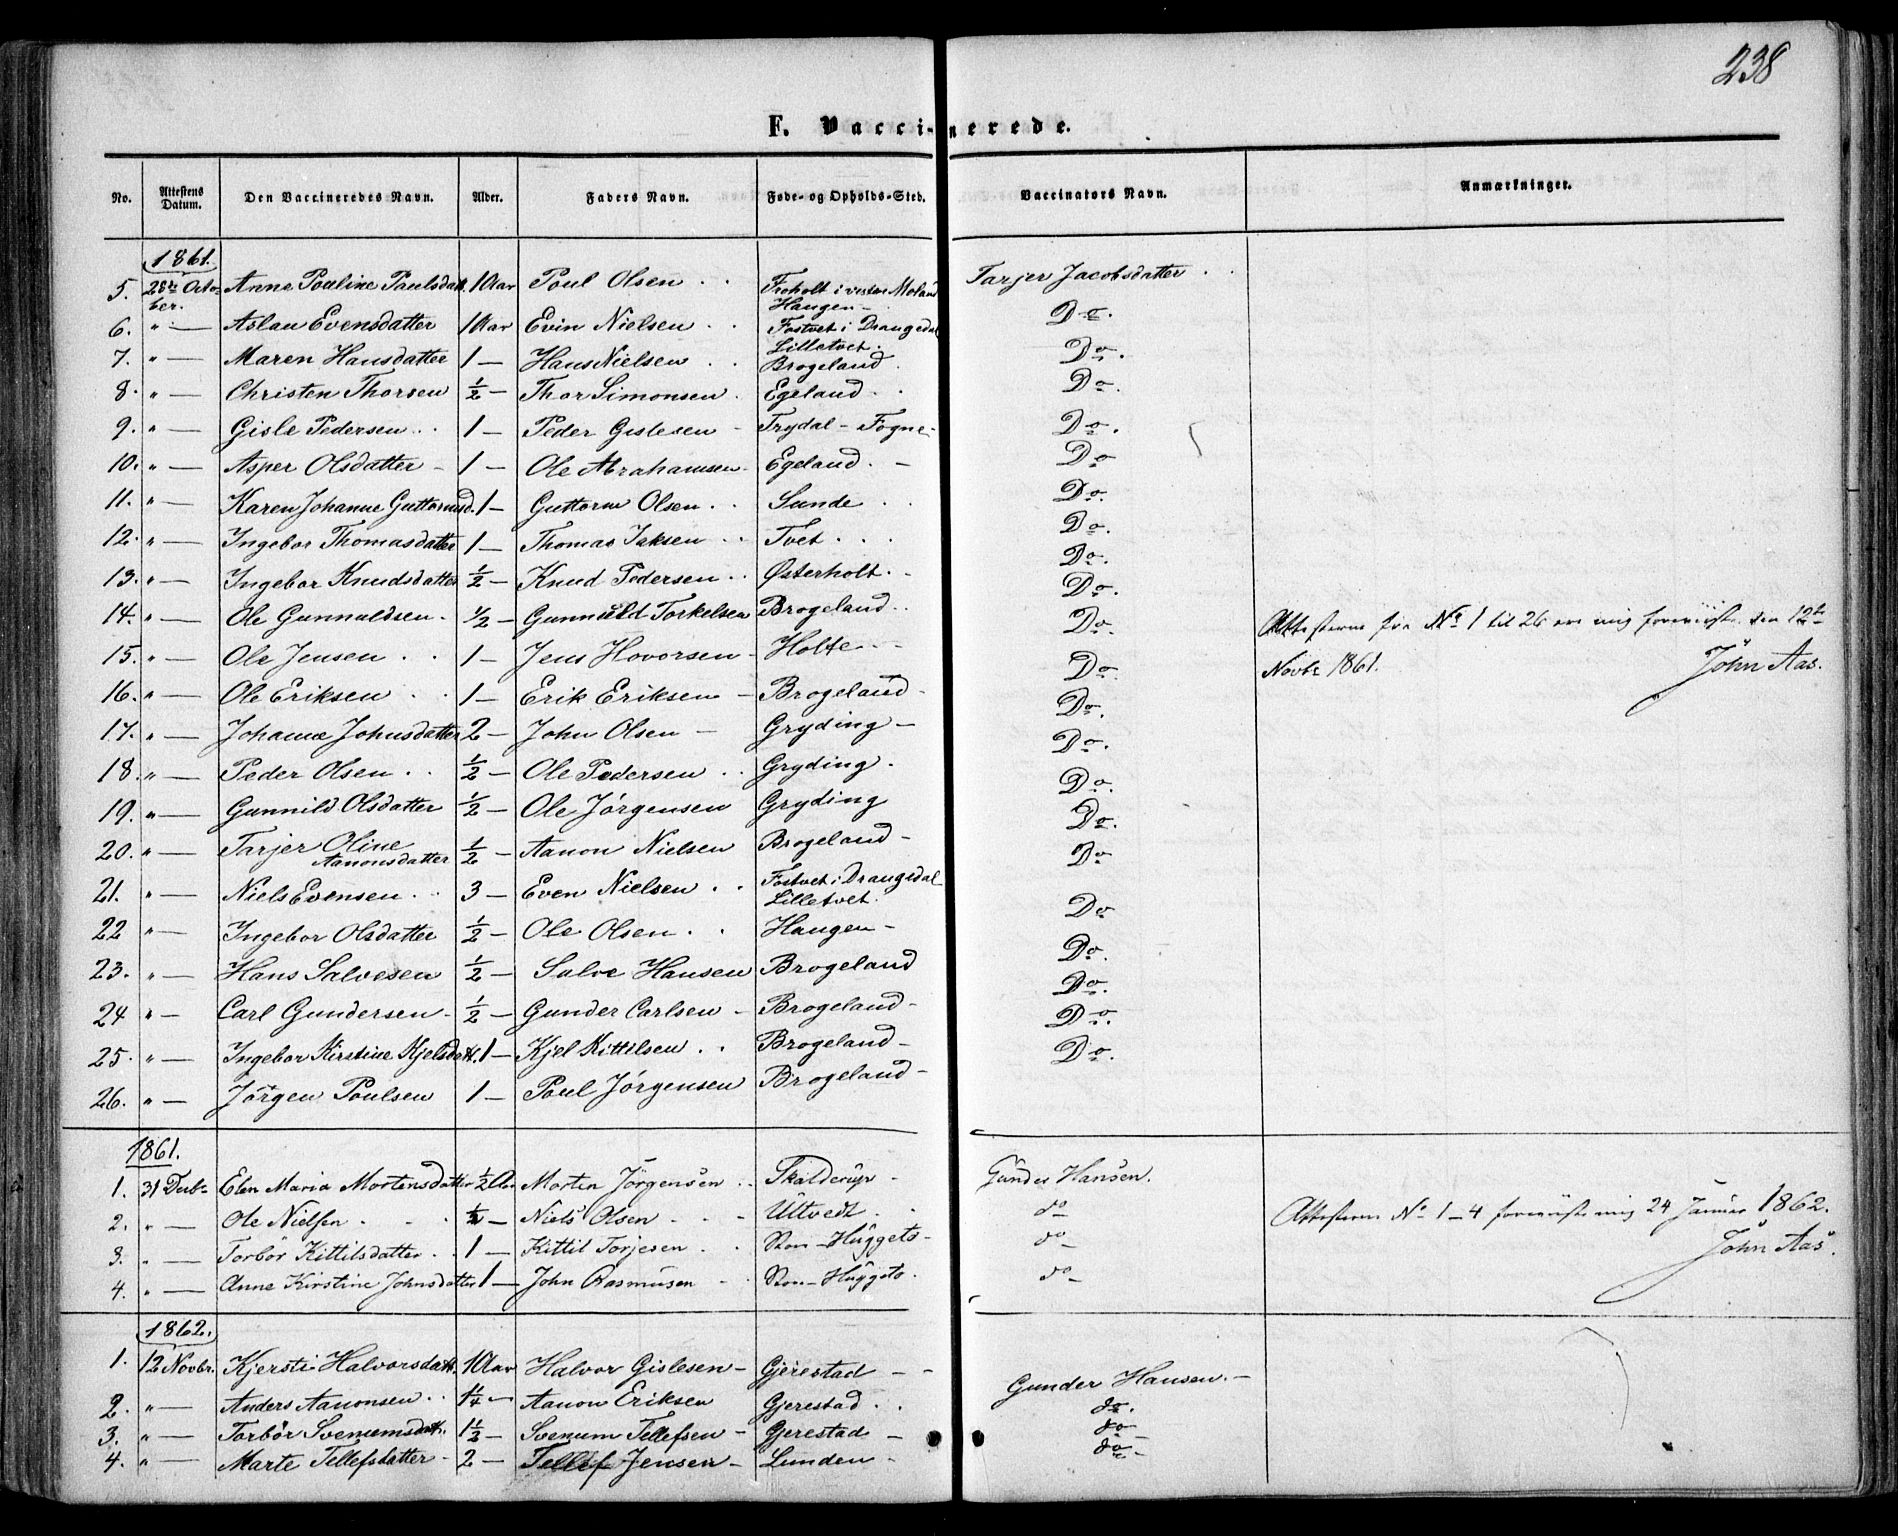 238
F. Vaccinerede.
No. Attestens Datum. Den Vaccineredes Navn. Alder. Faders Navn. Føde- og Opholds-Sted. Vaccinators Navn. Anmærkninger.
1861.
5. 28de October. Anna Pouline Paulsdatt. 1 Aar Poul Olsen Froholt i vestre Moland Haugen Tarjer Jacobsdatter
6. " — Aslau Evensdatter 1 Aar Evin Nielsen Fostvet i Drangedal Lilletvet Do.
7. " — Maren Hansdatter 1 — Hans Nielsen Brogeland Do.
8. " — Christen Thorsen ½ — Thor Simonsen Egeland Do.
9. " — Gisle Pedersen 1 — Peder Gislesen Trydal - Fogne Do.
10. " — Asper Olsdatter 1 — Ole Abrahamsen Egeland Do
11. " — Karen Johanne Guttormsd. 1 — Guttorm Olsen Sunde Do.
12. " — Ingebor Thomasdatter 1 — Thomas Isaksen Tvet Do.
13. " — Ingebor Knudsdatter ½ — Knud Pedersen Østerholt Do.
14. " — Ole Gunnuldsen ½ — Gunnuld Torkelsen Brogeland Do.
15. " — Ole Jensen 1 — Jens Hovorsen Holte Do.
16. " — Ole Eriksen 1 — Erik Eriksen Brogeland Do.
17. " — Johanne Johnsdatter 2 — John Olsen Gryding Do.
18. " — Peder Olsen ½ — Ole Pedersen Gryding Do.
19. " — Gunnild Olsdatter ½ — Ole Jørgensen Gryding Do.
20. " — Tarjer Oline Aanonsdatter ½ — Aanon Nielsen Brogeland Do.
21. " — Niels Evensen 3 — Even Nielsen Fostvet i Drangedal Lilletvet Do
22 " — Ingebor Olsdatter ½ — Ole Olsen Haugen Do
23. " — Hans Salvesen ½ — Salve Hansen Brogeland Do.
24 " — Carl Gundersen ½ — Gunder Carlsen Brogeland Do.
25. " — Ingebor Kirstine Kjelsdatt. 1 — Kjel Kittilsen Brogeland Do.
26. " — Jörgen Poulsen 1 — Poul Jørgensen Brogeland Do.
Attesterne fra No 1 til 26 ere mig foreviiste den 12te
Novbr 1861. John Aas.
1861.
1. 31 Decbr Elen Maria Mortensdatter ½ A. Morten Jörgensen Skalderup Gunder Hansen.
2. " — Ole Nielsen ½ — Niels Olsen Ultvedt do
3. " — Torbör Kittilsdatter 1 — Kittil Torjesen Hüggets do
4. " — Anne Kirstine Johnsdatter 1 — John Rasmusen Hüggets do
Attesterne No 1-4 foreviiste mig 24 Januar 1862.
John Aas.
1862.
1. 12 Novbr. Kjersti Halvorsdatt. 1 Aar Halvor Gislesen Gjerestad Gunder Hansen.
2. " — Anders Aanonsen 1¼ — Aanon Eriksen Gjerestad do.
3. " — Torbör Svenumsdatt. 1½ — Svenum Tellefsen Gjerestad do
4. " — Marte Tellefsdatter 2 — Tellef Jensen Lunden do